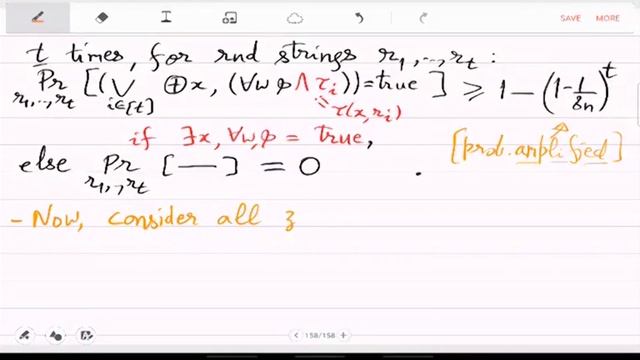 SAVE MORE
t times, for rnd strings r₁,..,r_t :
Pr_{r₁,..,r_t} [ ( ⋁_{i∈[t]} ⊕x, (∀w φ ∧ τᵢ)) = true ] ⩾ 1 − (1 − 1/8n)^t
≡ τ(x,rᵢ)
if ∃x, ∀w, φ = true,
[prob. amplified]
else Pr_{r₁,..,r_t} [ — ] = 0 .
- Now, consider all z
158/158